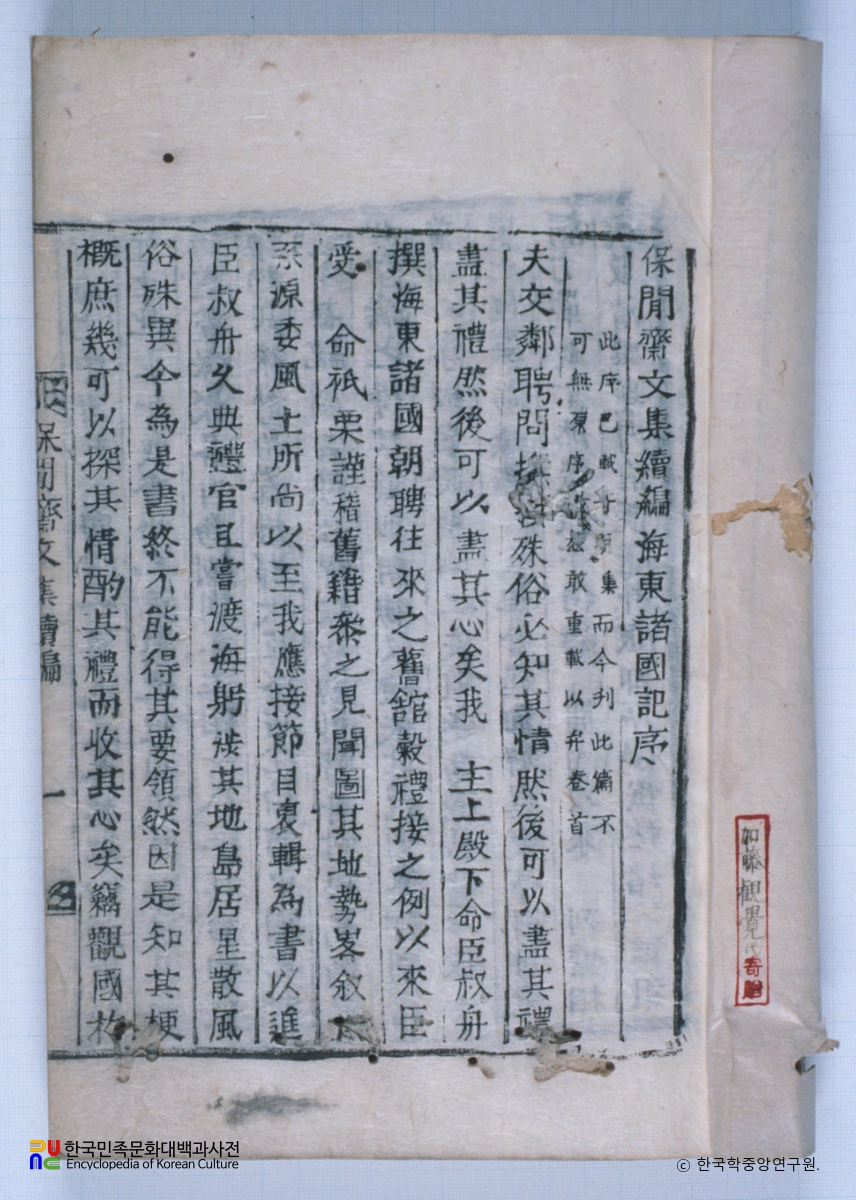 保閒齋文集續編海東諸國記序
此序已載 集而今刊此篇不
可無 序 敢重載以弁卷首
夫交鄰聘問 殊俗必知其情然後可以盡其禮
盡其禮然後可以盡其心矣我 主上殿下命臣叔舟
撰海東諸國朝聘往來之舊館穀禮接之例以來臣
受 命祗栗謹稽舊籍參之見聞圖其地勢畧叙
系源委風土所尚以至我應接節目裒輯為書以進
臣叔舟久典禮官且嘗渡海躬涉其地島居星散風
俗殊異今為是書終不能得其要領然因是知其梗
概庶幾可以探其情酌其禮而收其心矣竊觀國於
保閒齋文集續編
一
加藤觀覺氏寄贈
한국민족문화대백과사전
Encyclopedia of Korean Culture
© 한국학중앙연구원.